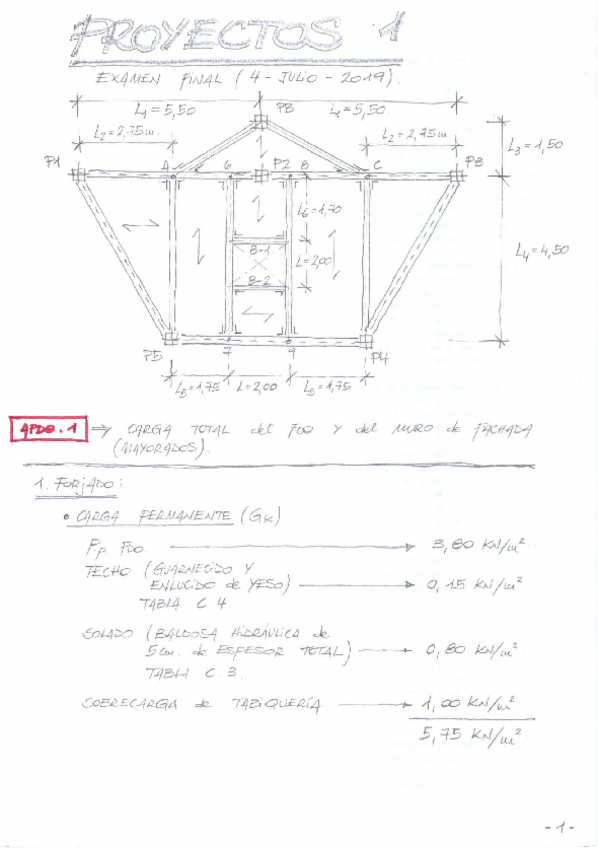 PROYECTOS 1
EXAMEN FINAL (4-JULIO-2019).
L₁=5,50 P8 L₁=5,50
L₂=2,75m L₂=2,75m L₃=1,50
P1 A 6 P2 8 C P3
L₆=1,70
B-1 L=2,00 L₄=4,50
B-2
P5 7 9 P4
L₅=1,75 L=2,00 L₅=1,75
APDO.1 ⇒ CARGA TOTAL del FDO Y del MURO de FACHADA
(MAYORADOS).
1. FORJADO:
• CARGA PERMANENTE (Gk)
P.p. FDO. → 3,80 KN/m²
TECHO (GUARNECIDO Y
ENLUCIDO de YESO) → 0,15 KN/m²
TABLA C4
SOLADO (BALDOSA HIDRÁULICA de
5cm. de ESPESOR TOTAL) → 0,80 KN/m²
TABLA C.3.
SOBRECARGA de TABIQUERÍA → 1,00 KN/m²
5,75 KN/m²
-1-